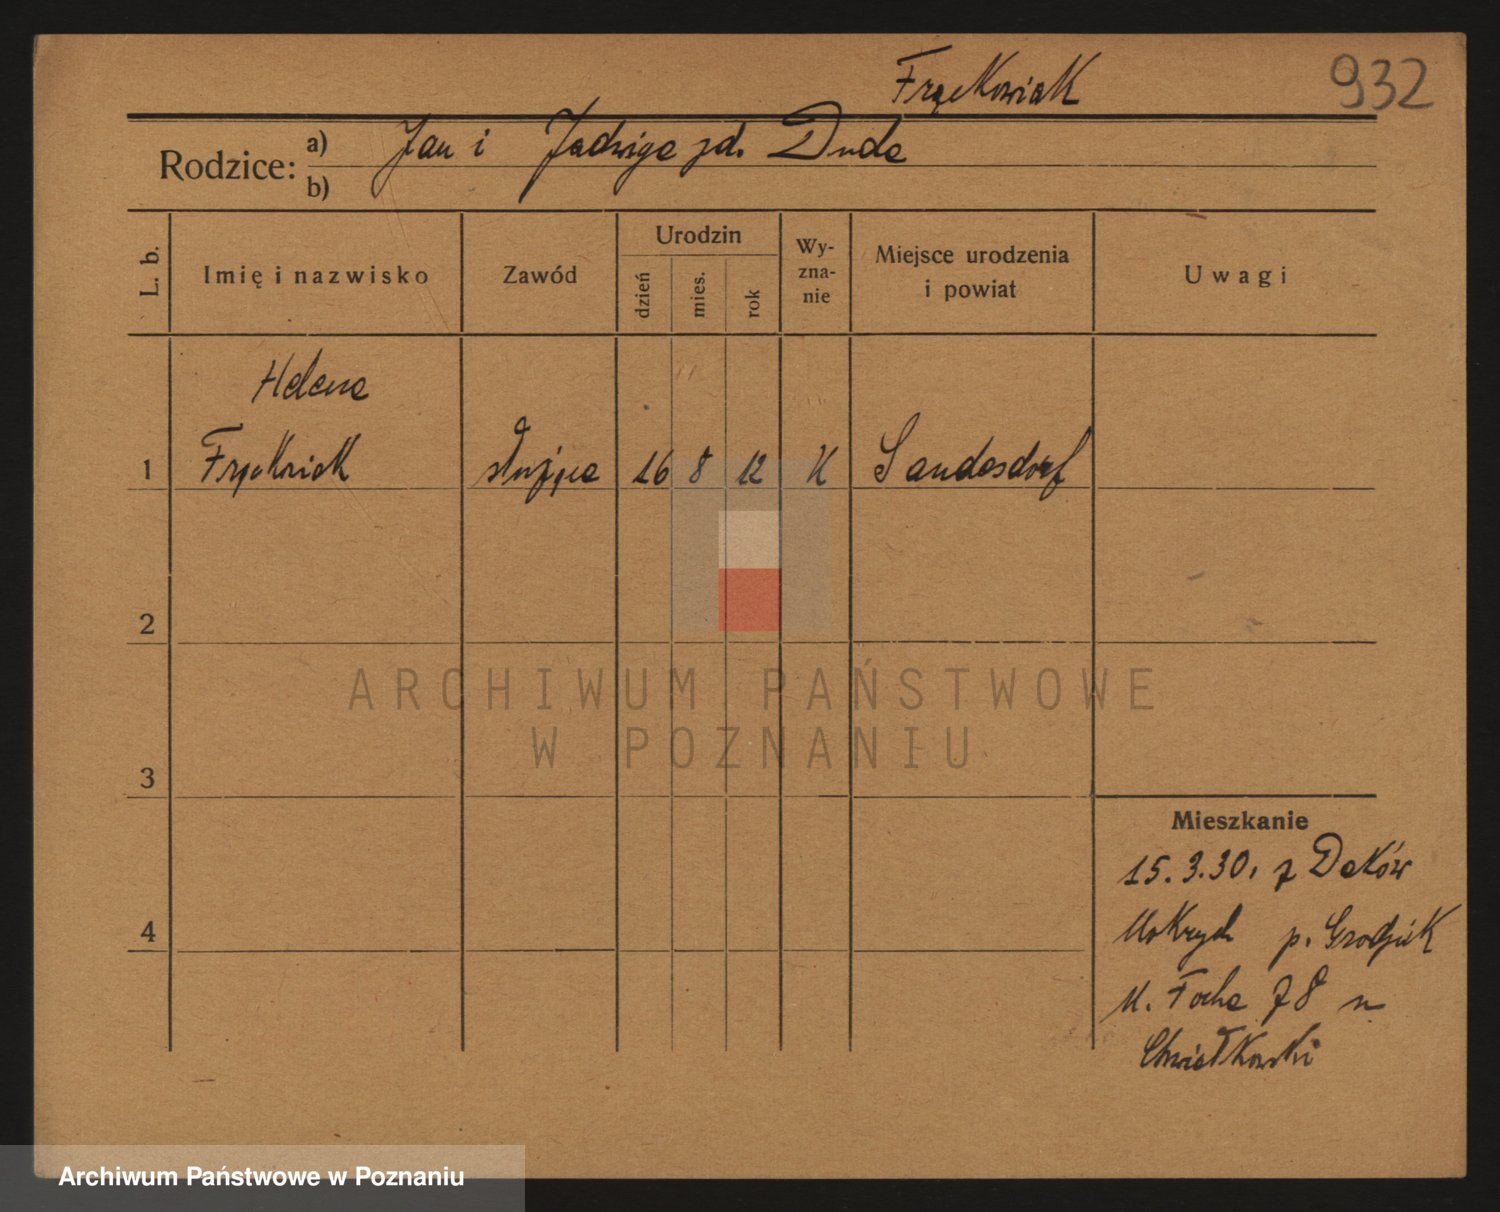 Frąckowiak
932
Rodzice: a) Jan i Jadwiga zd. Duda
b)
L. b. Imię i nazwisko Zawód Urodzin dzień mies. rok Wy-zna-nie Miejsce urodzenia i powiat Uwagi
Helena
1 Frąckowiak służąca 16 8 12 K Sandesdorf
2
ARCHIWUM PAŃSTWOWE
W POZNANIU
3
Mieszkanie
15.3.30. z Daków
4 Mokrych p. Grodzisk
M. Focha 78 u
Chwiałkowski
Archiwum Państwowe w Poznaniu